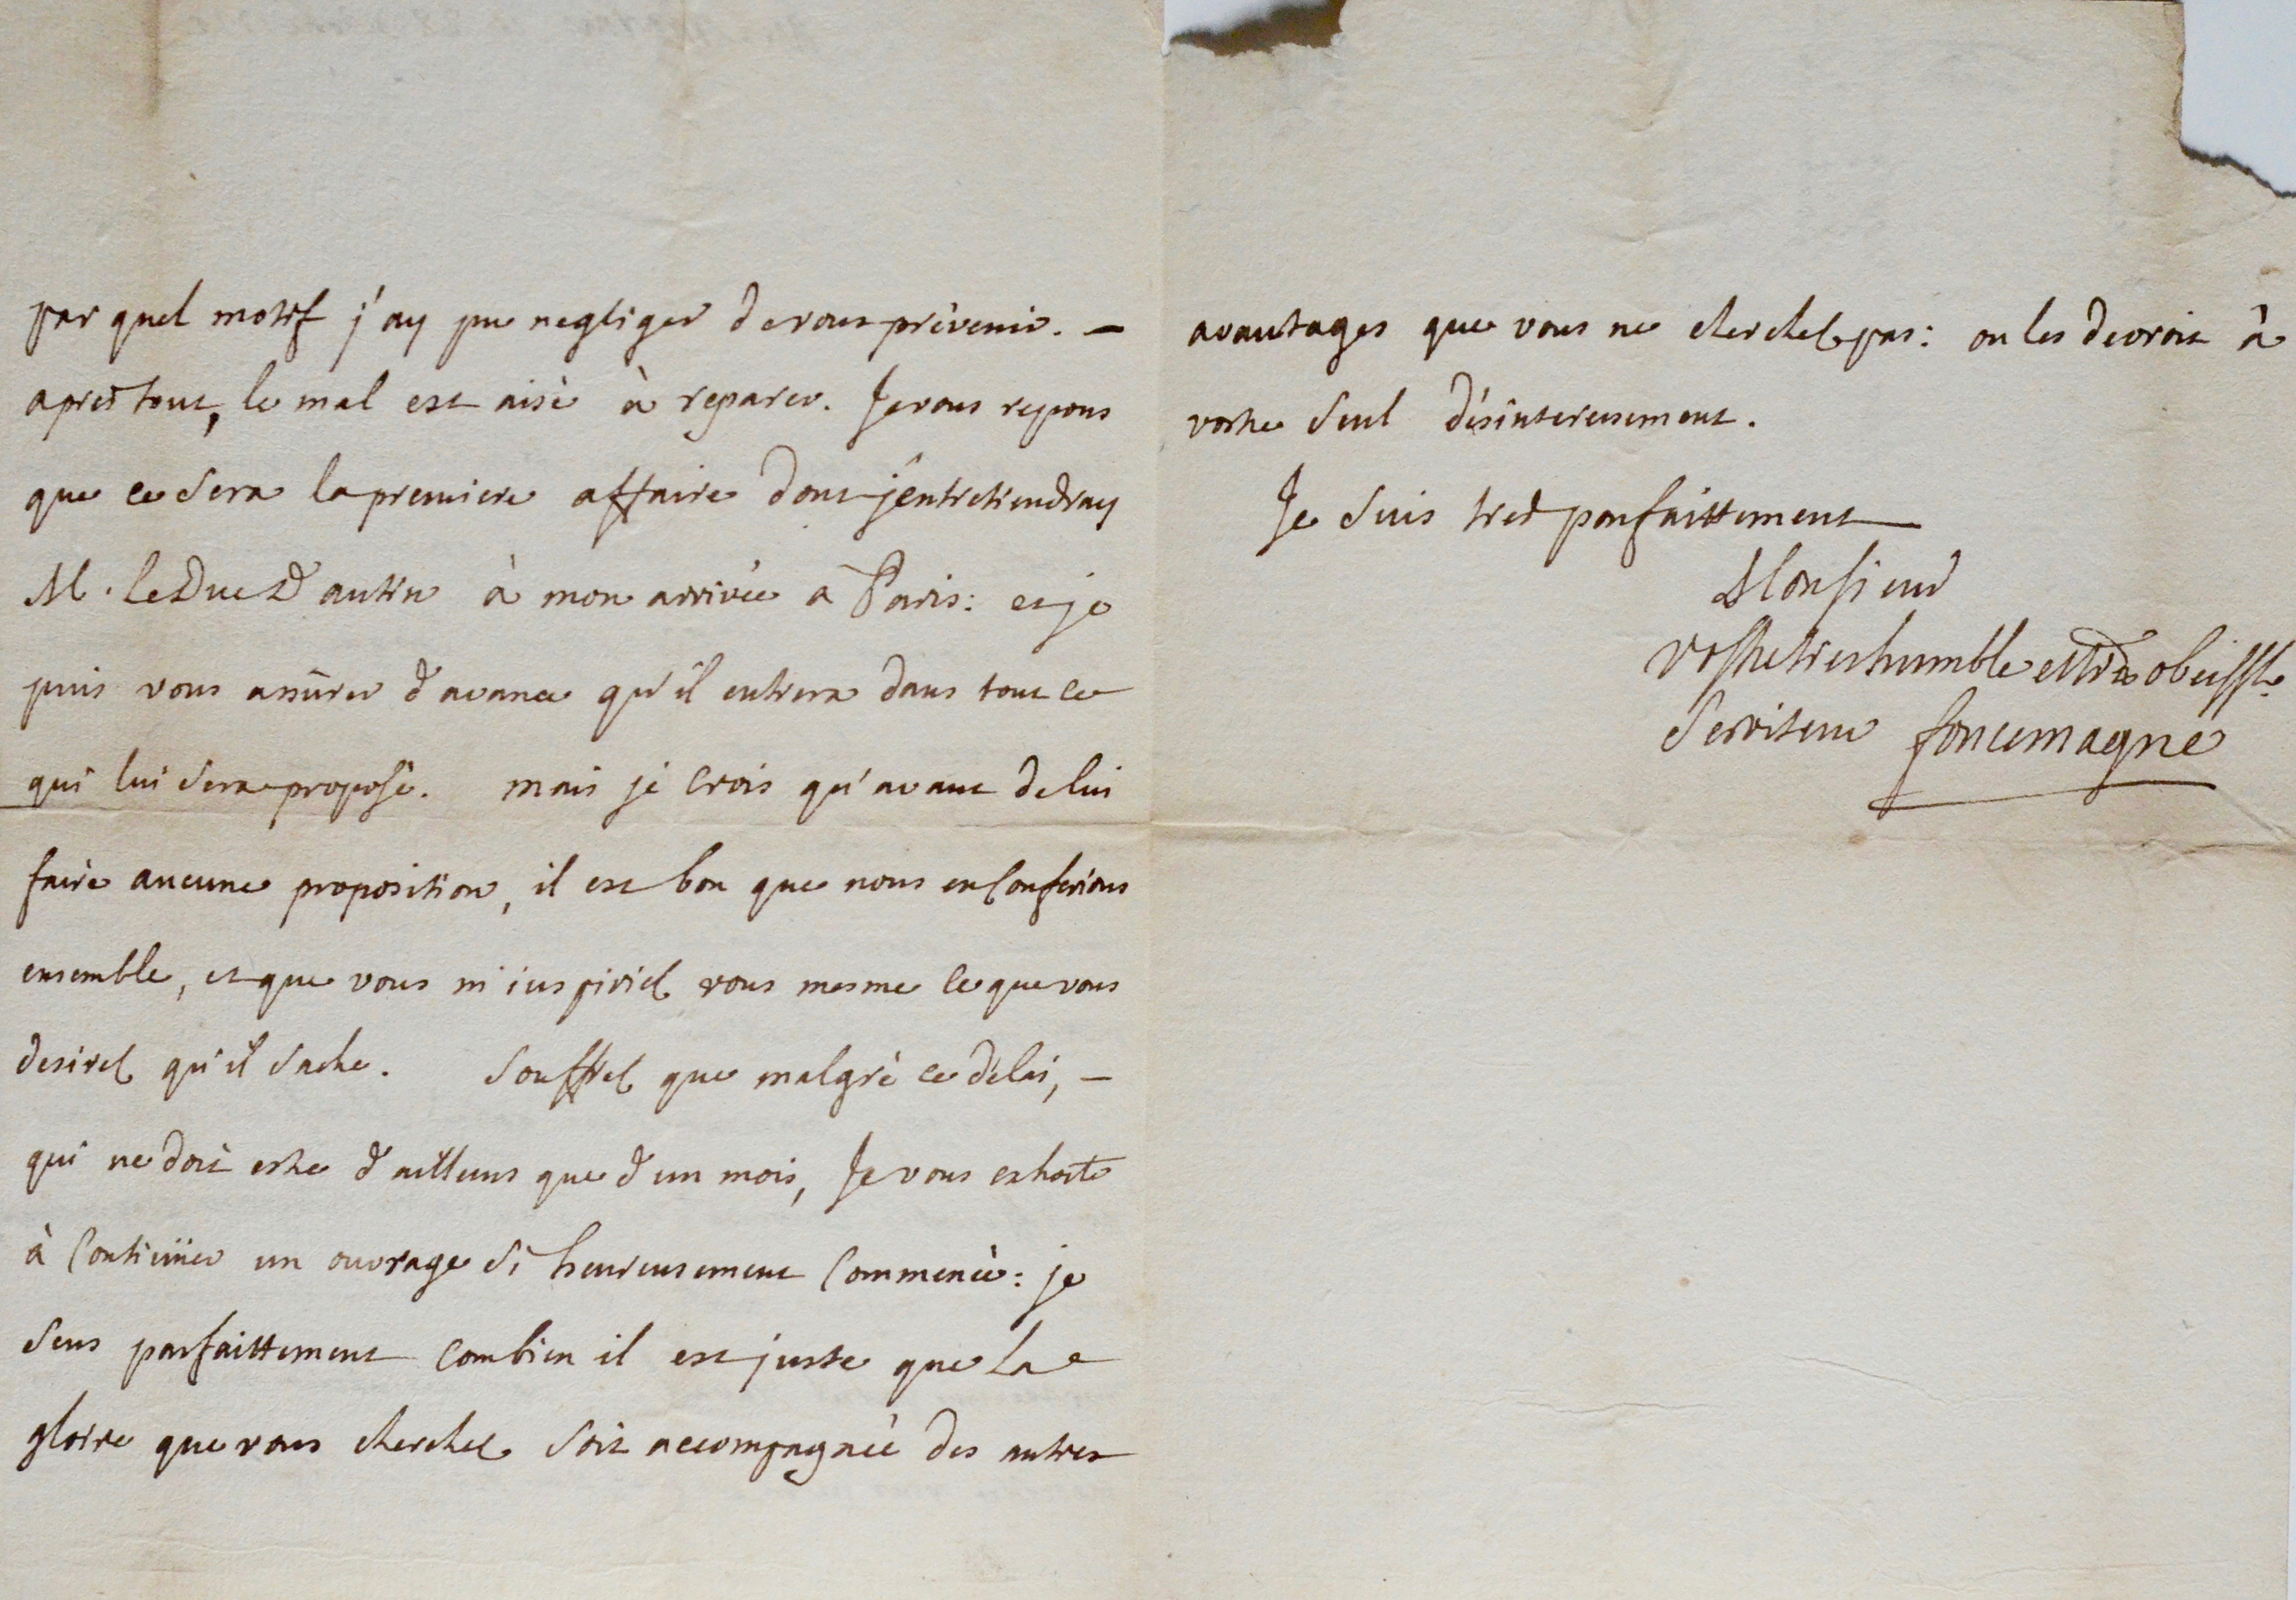 par quel motif j'ay pu negliger de vous prévenir. —
apres tout, le mal est aisé à reparer. Je vous repons
que ce sera la premiere affaire dont j'entretiendray
M. le Duc D'antin à mon arrivée a Paris: et je
puis vous assûrer d'avance qu'il entrera dans tout ce
qui lui sera proposé. mais je crois qu'avant de lui
faire aucune proposition, il est bon que nous en conferions
ensemble, et que vous m'inspiriez vous mesme ce que vous
desirez qu'il sache. Souffrez que malgré ce délai, —
qui ne doit estre d'ailleurs que d'un mois, Je vous exhorte
à continüer un ouvrage si heureusement commencé: je
sens parfaittement combien il est juste que la
gloire que vous cherchez soit accompagnée des autres
avantages que vous ne cherchez pas: on les devroit à
vostre seul désinteressement.
Je suis tres parfaittement
Monsieur
vostre tres humble et tres obeisst.
Serviteur foncemagne